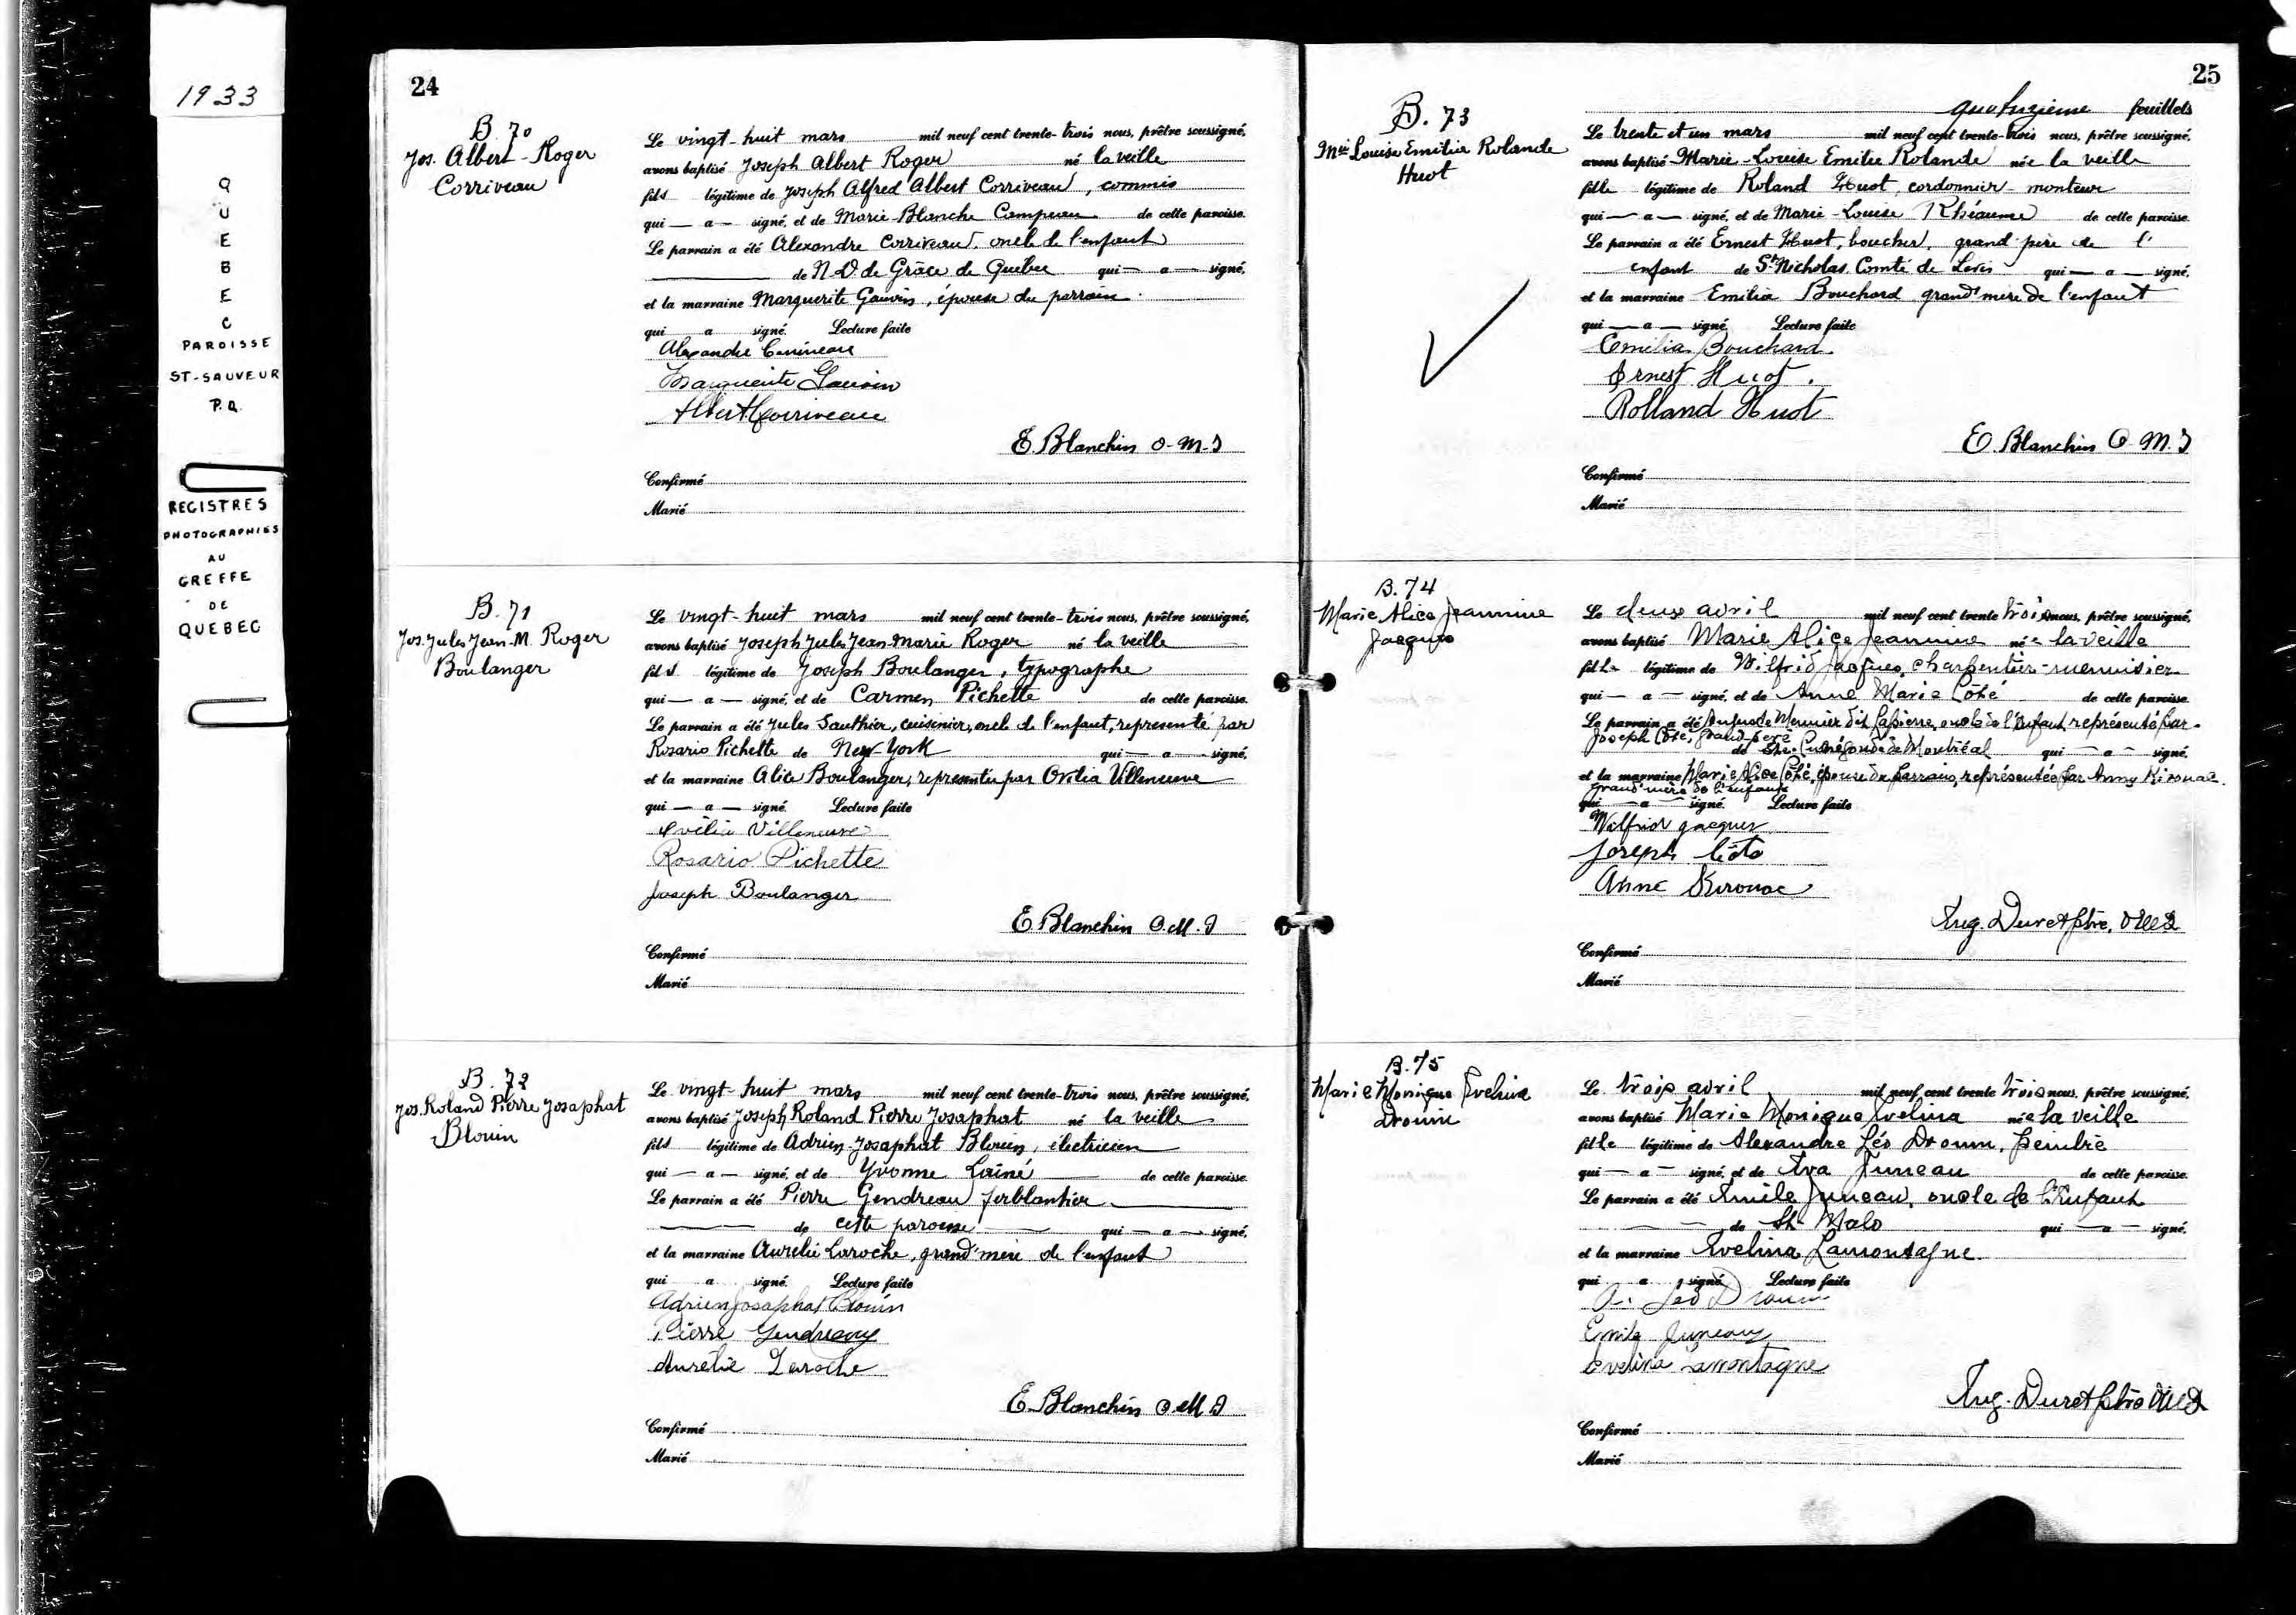 1933
QUEBEC
PAROISSE
ST-SAUVEUR
P.Q.
REGISTRES
PHOTOGRAPHIES
AU
GREFFE
DE
QUEBEC
24
B. 70
Jos. Albert-Roger
Corriveau
Le vingt-huit mars mil neuf cent trente-trois nous, prêtre soussigné,
avons baptisé Joseph Albert Roger né la veille
fils légitime de Joseph Alfred Albert Corriveau, commis
qui — a — signé, et de Marie-Blanche Campeau de cette paroisse.
Le parrain a été Alexandre Corriveau, oncle de l'enfant
de N.D. de Grâce de Québec qui — a — signé,
et la marraine Marguerite Gauvin, épouse du parrain.
qui a signé. Lecture faite
Alexandre Corriveau
Marguerite Gauvin
Albert Corriveau
E. Blanchin O.M.I
Confirmé
Marié
B. 71
Jos. Jules Jean-M. Roger
Boulanger
Le vingt-huit mars mil neuf cent trente-trois nous, prêtre soussigné,
avons baptisé Joseph Jules Jean-Marie Roger né la veille
fils légitime de Joseph Boulanger, typographe
qui — a — signé, et de Carmen Pichette de cette paroisse.
Le parrain a été Jules Sauthier, cuisinier, oncle de l'enfant, représenté par
Rosario Pichette de New York qui — a — signé,
et la marraine Alice Boulanger, représentée par Ovilia Villeneuve
qui — a — signé. Lecture faite
Ovilia Villeneuve
Rosario Pichette
Joseph Boulanger
E. Blanchin O.M.I
Confirmé
Marié
B. 72
Jos. Roland Pierre Josaphat
Blouin
Le vingt-huit mars mil neuf cent trente-trois nous, prêtre soussigné,
avons baptisé Joseph Roland Pierre Josaphat né la veille
fils légitime de Adrien-Josaphat Blouin, électricien
qui — a — signé, et de Yvonne Lainé de cette paroisse.
Le parrain a été Pierre Gendreau ferblantier
de cette paroisse qui — a — signé,
et la marraine Aurélie Laroche, grand'mère de l'enfant
qui a signé. Lecture faite
Adrien Josaphat Blouin
Pierre Gendreau
Aurélie Laroche
E. Blanchin O.M.I
Confirmé
Marié
25
feuillets
B. 73
Mie Louise Emilia Rolande
Huot
Le trente et un mars mil neuf cent trente-trois nous, prêtre soussigné,
avons baptisé Marie-Louise Emilie Rolande née la veille
fille légitime de Roland Huot, cordonnier-monteur
qui — a — signé, et de Marie-Louise Rhéaume de cette paroisse.
Le parrain a été Ernest Huot, boucher, grand-père de l'
enfant de St Nicholas, Comté de Levis qui — a — signé,
et la marraine Emilia Bouchard grand'mère de l'enfant
qui — a — signé. Lecture faite
Emilia Bouchard
Ernest Huot.
Rolland Huot
E. Blanchin O.M.I
Confirmé
Marié
B. 74
Marie Alice Jeannine
Jacques
Le deux avril mil neuf cent trente trois nous, prêtre soussigné,
avons baptisé Marie Alice Jeannine née la veille
fille légitime de Wilfrid Jacques, charpentier-menuisier
qui — a — signé, et de Anne Marie Côté de cette paroisse.
Le parrain a été Auguste Meunier dit Lapierre, oncle de l'Enfant, représenté par
Joseph Côté, grand père
de Ste Cunégonde de Montréal qui — a — signé,
et la marraine Marie Alice Côté, épouse du parrain, représentée par Anny Kirouac
grand'mère de l'enfant
qui — a — signé. Lecture faite
Wilfrid Jacques
Joseph Côté
Anne Kirouac
Aug. Duret ptre, OMI
Confirmé
Marié
B. 75
Marie Monique Evelina
Drouin
Le trois avril mil neuf cent trente trois nous, prêtre soussigné,
avons baptisé Marie Monique Evelina née la veille
fille légitime de Alexandre Léo Drouin, peintre
qui — a — signé, et de Eva Juneau de cette paroisse.
Le parrain a été Emile Juneau, oncle de l'Enfant
de St-Malo qui — a — signé,
et la marraine Evelina Lamontagne.
qui a signé. Lecture faite
A. Léo Drouin
Emile Juneau
Evelina Lamontagne
Aug. Duret ptre OMI
Confirmé
Marié